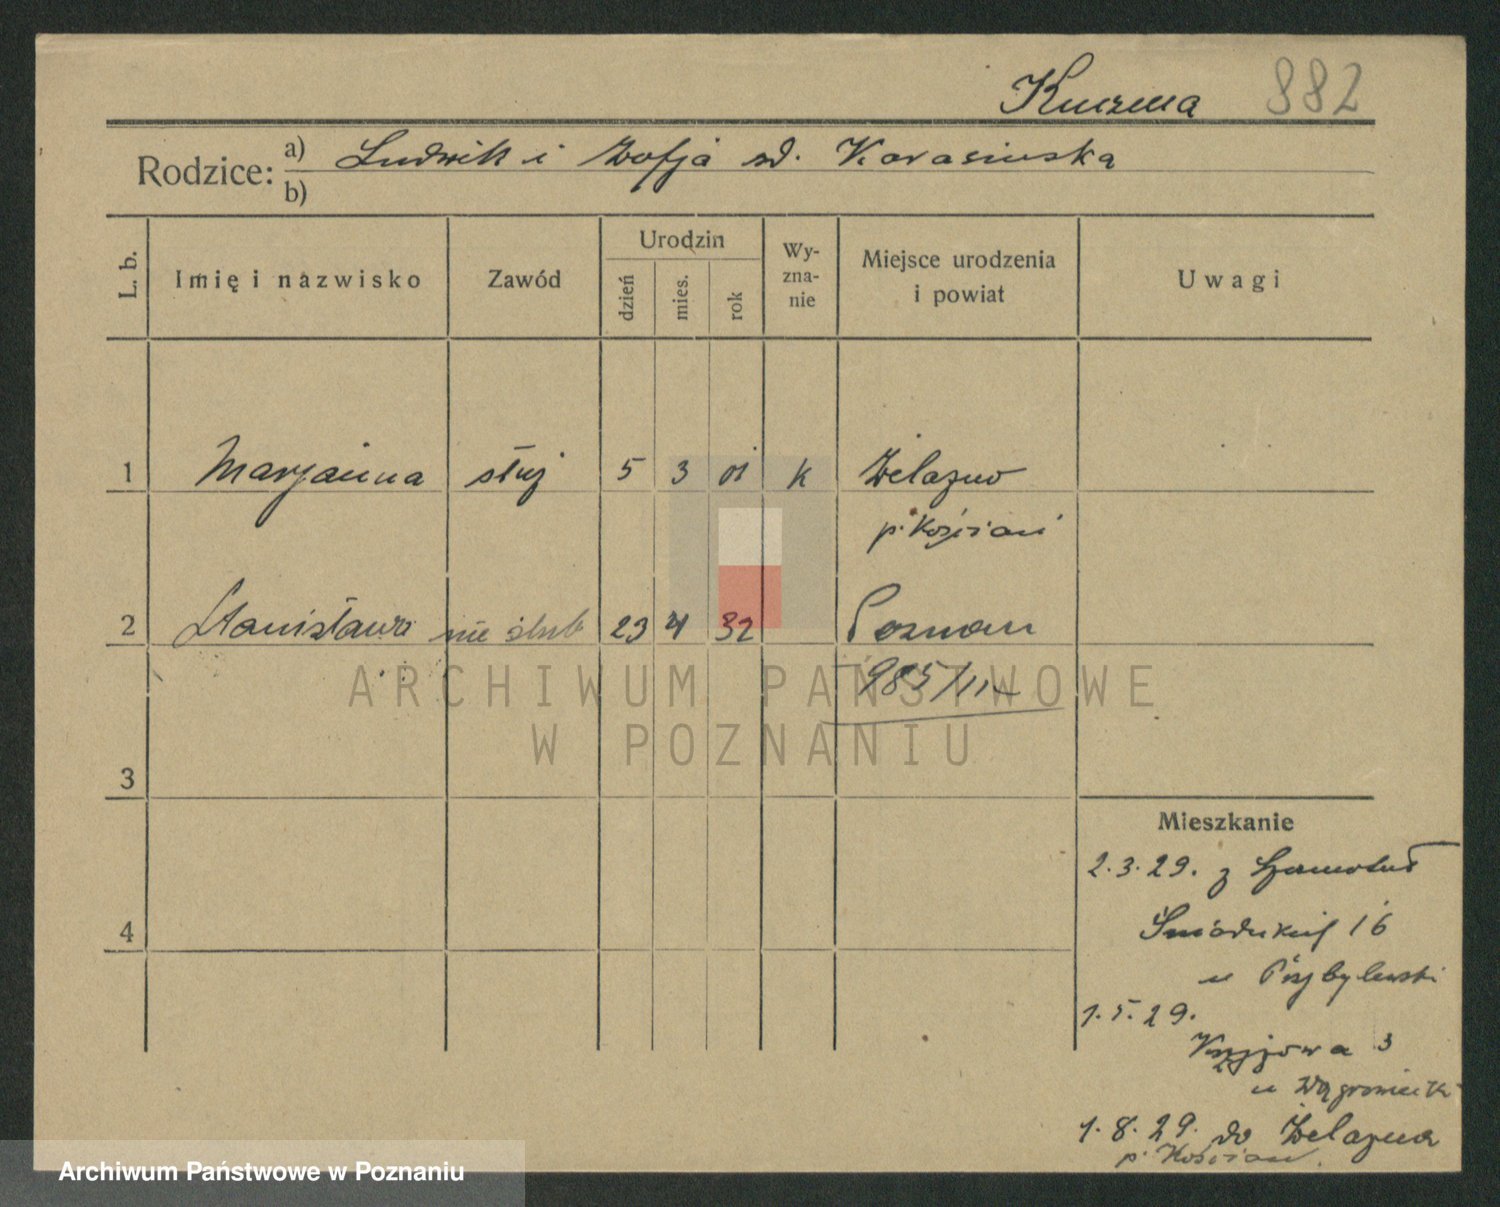 Kuczma 882
Rodzice: a) Ludwik i Zofja zd. Karasinska
b)
L. b.
Imię i nazwisko
Zawód
Urodzin
dzień
mies.
rok
Wy-
zna-
nie
Miejsce urodzenia
i powiat
Uwagi
1 Marjanna służ 5 3 01 k Żelazno
p. Kościan
2 Stanisława nie ślub 23 4 32 Poznan
985/III
ARCHIWUM PAŃSTWOWE
W POZNANIU
3
4
Mieszkanie
2.3.29. z Szamotuł
Śniadeckich 16
u Przybylewski
1.5.29.
Krzyżowa 3
u Wągrowiecki
1.8.29. do Żelazna
p. Kościan.
Archiwum Państwowe w Poznaniu